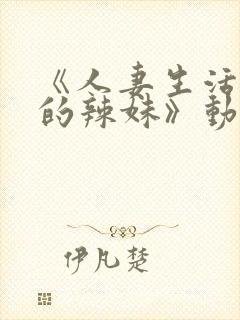 《人妻生活
的辣妹》動
伊凡楚